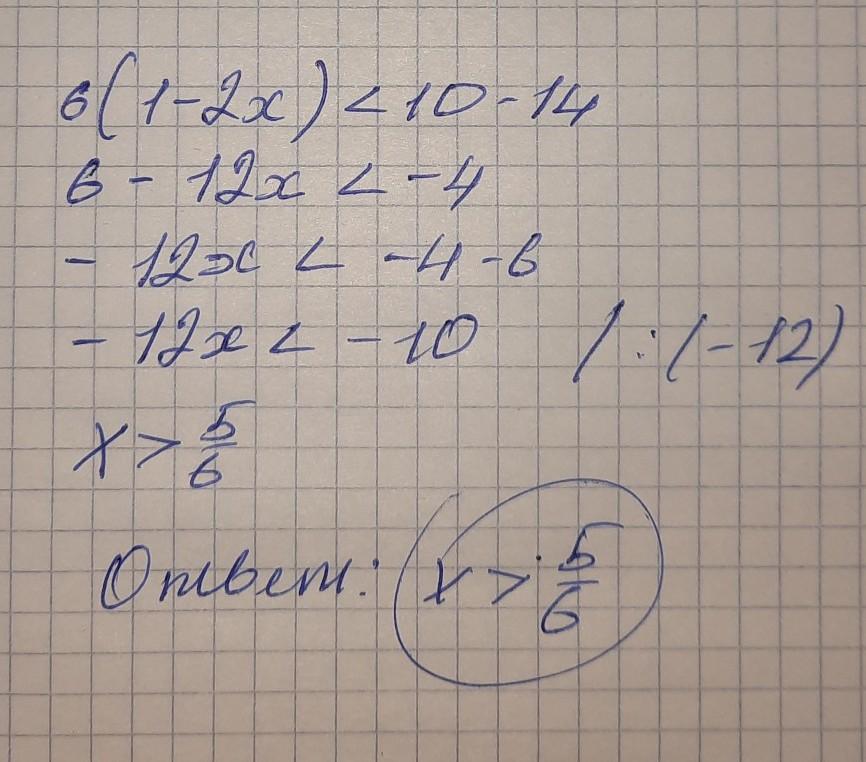 6(1-2x) < 10-14
6 - 12x < -4
- 12x < -4 -6
- 12x < -10 / : (-12)
x > 5/6
Ответ: x > 5/6